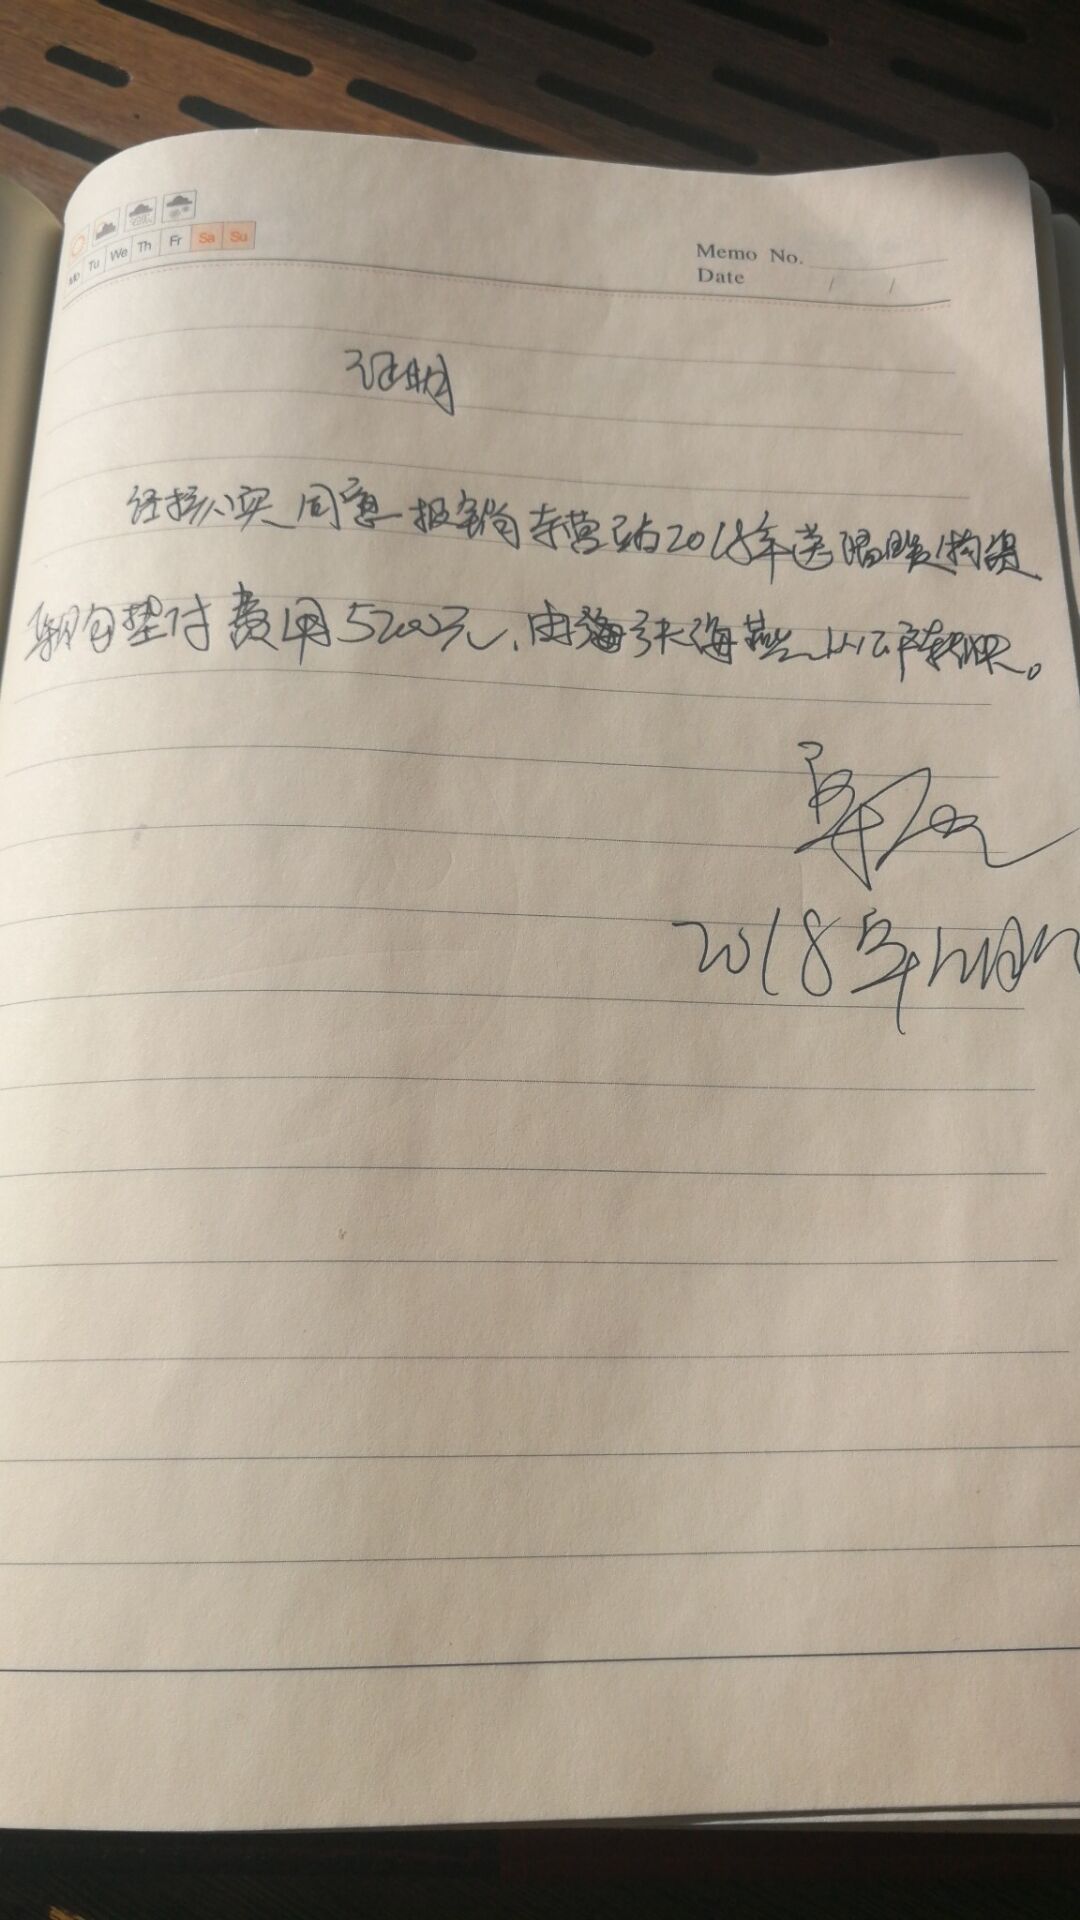 Mo Tu We Th Fr Sa Su
Memo No.
Date / /
证明
经核实同意报销东营站2018年送温暖物资
垫付费用5200元，由张海燕从公户转账。
2018年